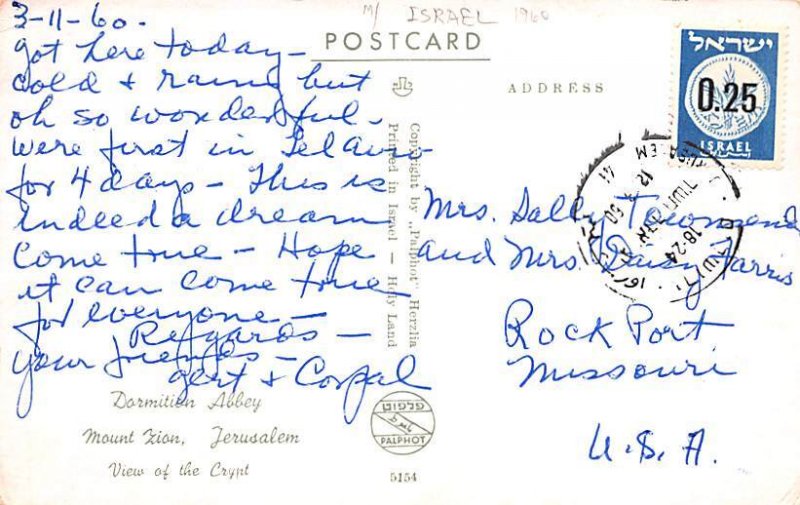 3-11-60.
got here today -
cold & raining but
oh so wonderful.
were first in Tel Aviv
for 4 days - This is
indeed a dream
come true - Hope
it can come true
for everyone -
Regards -
your friends -
Gert &
Dormition Abbey
Mount Zion, Jerusalem
View of the Crypt
M/ ISRAEL 1960
POSTCARD
ADDRESS
Copyright by „Palphot" Herzlia
Printed in Israel - Holy Land
פלפוט
PALPHOT
5154
ישראל
0.25
ISRAEL
18-24
Mrs. Sally Townsend
and Mrs. Daisy Farris
Rock Port
Missouri
U.S.A.